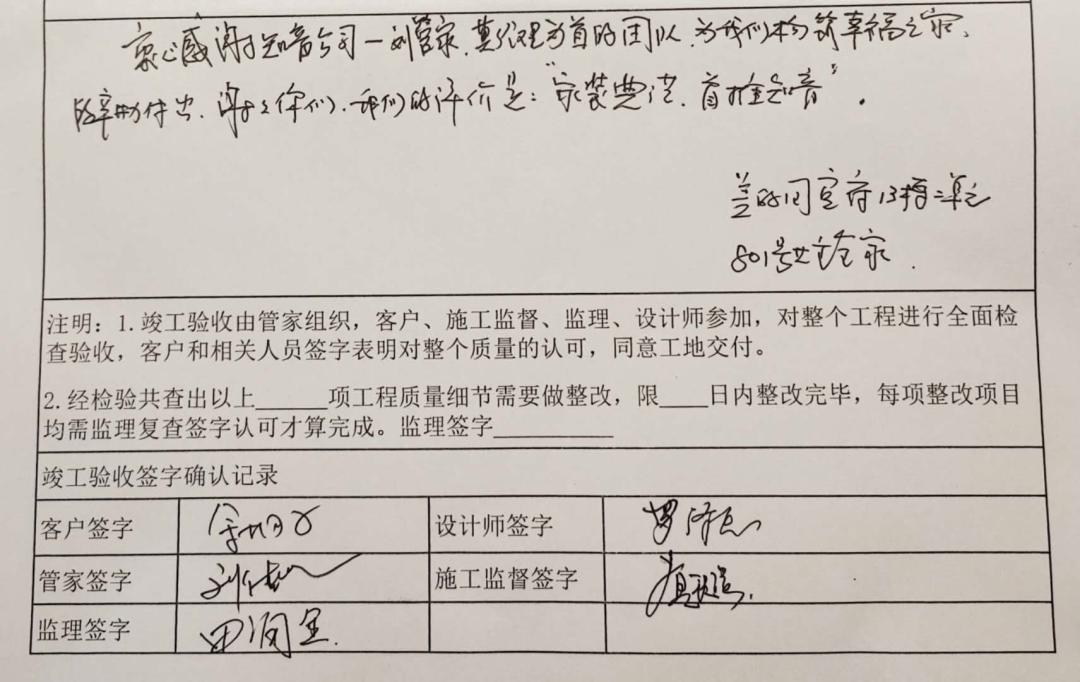 衷心感谢知音公司一刘管家、莫经理为首的团队、为我们构筑幸福之家、
的辛勤付出、谢谢你们、我们的评价是：“家装典范、首推知音”。
兰的同官府13栋二单元
801号业主全家.
注明：1.竣工验收由管家组织，客户、施工监督、监理、设计师参加，对整个工程进行全面检
查验收，客户和相关人员签字表明对整个质量的认可，同意工地交付。
2.经检验共查出以上______项工程质量细节需要做整改，限____日内整改完毕，每项整改项目
均需监理复查签字认可才算完成。监理签字__________
竣工验收签字确认记录
客户签字
设计师签字
管家签字 刘
施工监督签字
监理签字 田